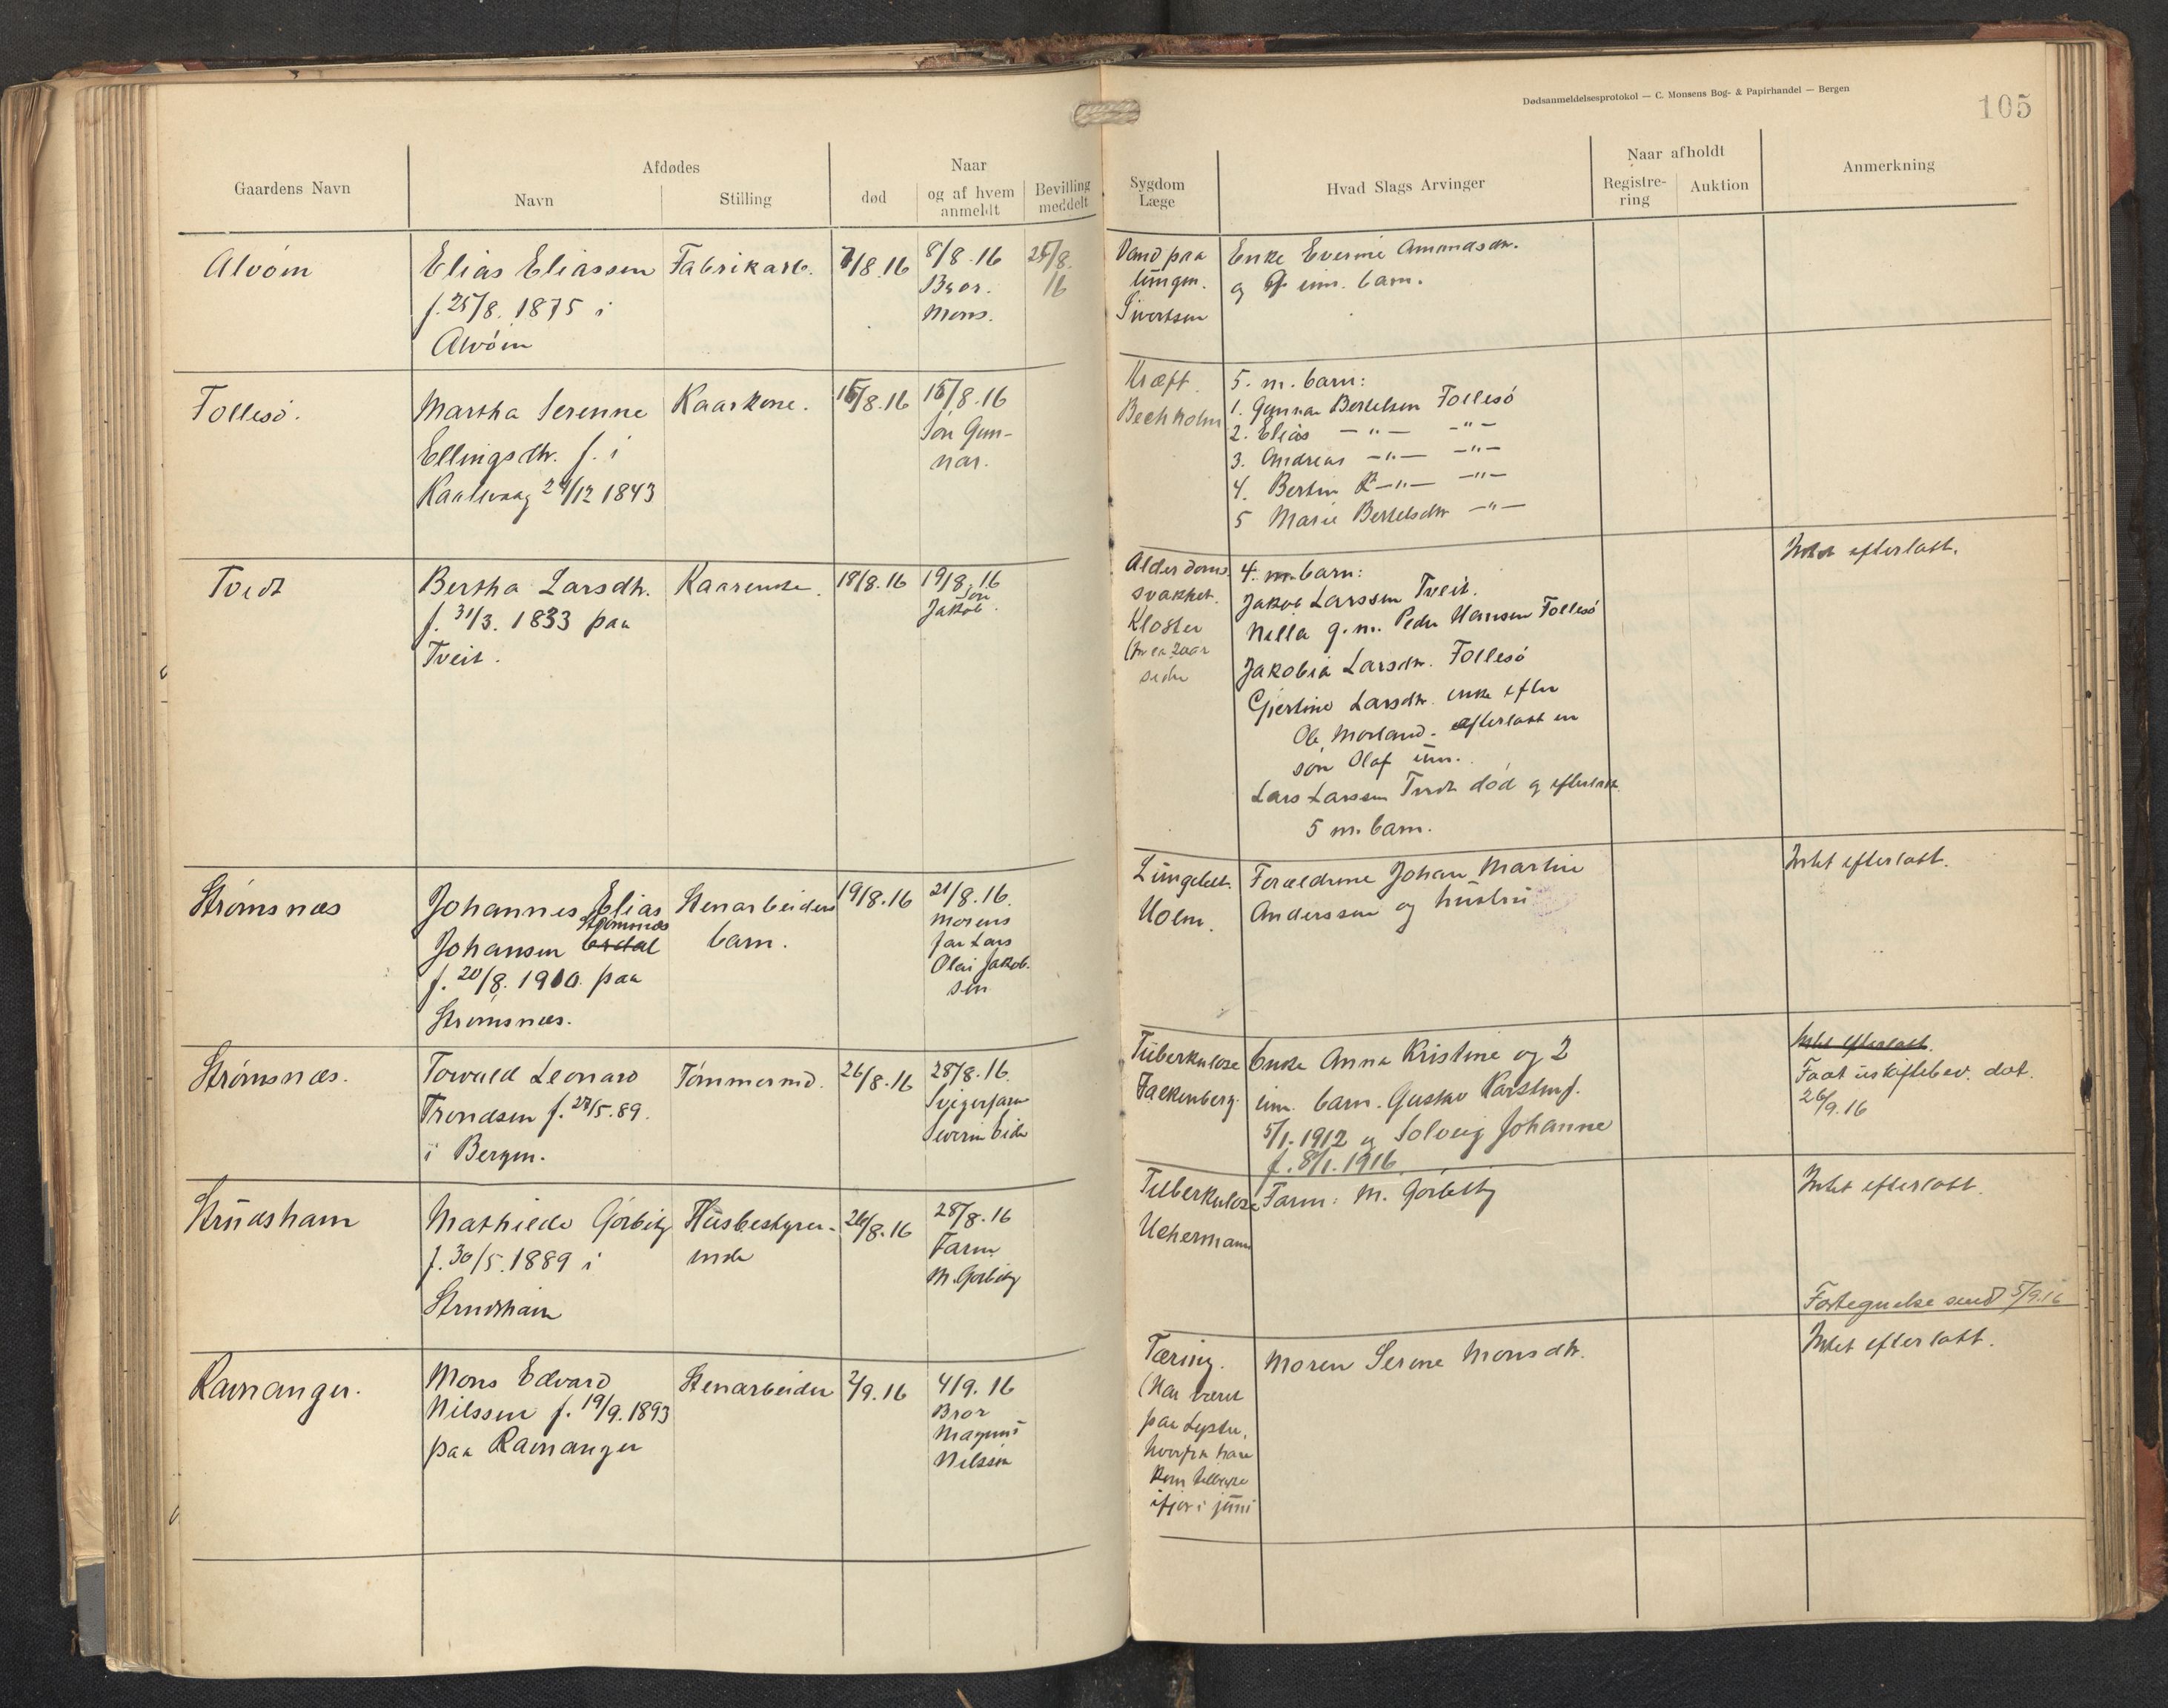 Dødsanmeldelsesprotokol — C. Monsens Bog- & Papirhandel — Bergen
105
Gaardens Navn
Afdødes
Navn
Stilling
Naar
død
og af hvem
anmeldt
Bevilling
meddelt
Sygdom
Læge
Hvad Slags Arvinger
Naar afholdt
Registre-
ring
Auktion
Anmerkning
Alvøin
Elias Eliassen
f. 25/8. 1875 i
Alvøin
Fabrikarb.
7/8.16
8/8.16
Bror.
Mons.
25/8.
16
Vand paa
lungen.
Sivertsen
Enke Everine Amundsdtr.
og um. barn.
Follesö.
Martha Serenne
Ellingsdtr. f. i
24/12 1843
Kaarkone.
15/8.16
15/8.16
Sön Gun-
nar.
Kræft.
Bechholm
5. m. barn:
1. Gunnar Bertelsen Follesö
2. Elias —"— —"—
3. Andreas —"— —"—
4. Bertin —"— —"—
5 Marie Bertelsdtr —"—
Tvedt
Bertha Larsdtr.
f. 31/3. 1833 paa
Tveit.
Kaarenke.
18/8.16
19/8.16
Sön
Jakob.
Alderdoms
svakhet.
Kloster
siden
4. m. barn:
Jakob Larssen Tveit.
Nilla g. m. Peder Hansen Follesö
Jakobia Larsdtr. Follesö
Gjertine Larsdtr. enke efter
Ole Morland. efterlatt en
sön Olaf um.
Lars Larssen Tvedt död og efterlatt
5 m. barn.
Intet efterlatt.
Strømsnæs
Johannes Elias
Strømsnæs
Johansen
f. 20/8. 1910 paa
Strømsnæs.
Stenarbeiders
barn.
19/8.16
21/8.16.
Morens
far Lars
Olai Jakob-
sen
Lungebet.
Holm.
Forældrene Johan Martin
Anderssen og hustru
Intet efterlatt.
Strømsnæs.
Torvald Leonard
Trondsen f. 27/5.89.
i Bergen.
Tømmermd.
26/8.16
28/8.16.
Svigerfaren
Severin Eide
Tuberkulose
Fackenberg.
Enke Anna Kristine og 2
um. barn. Gustav Karsten f.
5/1.1912 og Solveig Johanne
f. 8/1.1916.
Intet efterlatt.
Faat uskiftebev. dat.
26/9.16
Strudsham
Mathilde Görbitz
f. 30/5.1889 i
Strudsham
Husbestyrer-
inde
26/8.16
28/8.16
Faren
M. Görbitz
Tuberkulose
Uchermann
Faren: M. Görbitz
Intet efterlatt.
Fortegnelse sendt 5/9.16
Ramanger.
Mons Edvard
Nilssen f. 19/9.1893
paa Ramanger
Stenarbeider
2/9.16
4/9.16
Bror
Magnus
Nilssen
Tæring.
(Har været
paa Lyster,
hvorfra han
kom tilbake
ifjor i juni
Moren Serine Monsdtr.
Intet efterlatt.